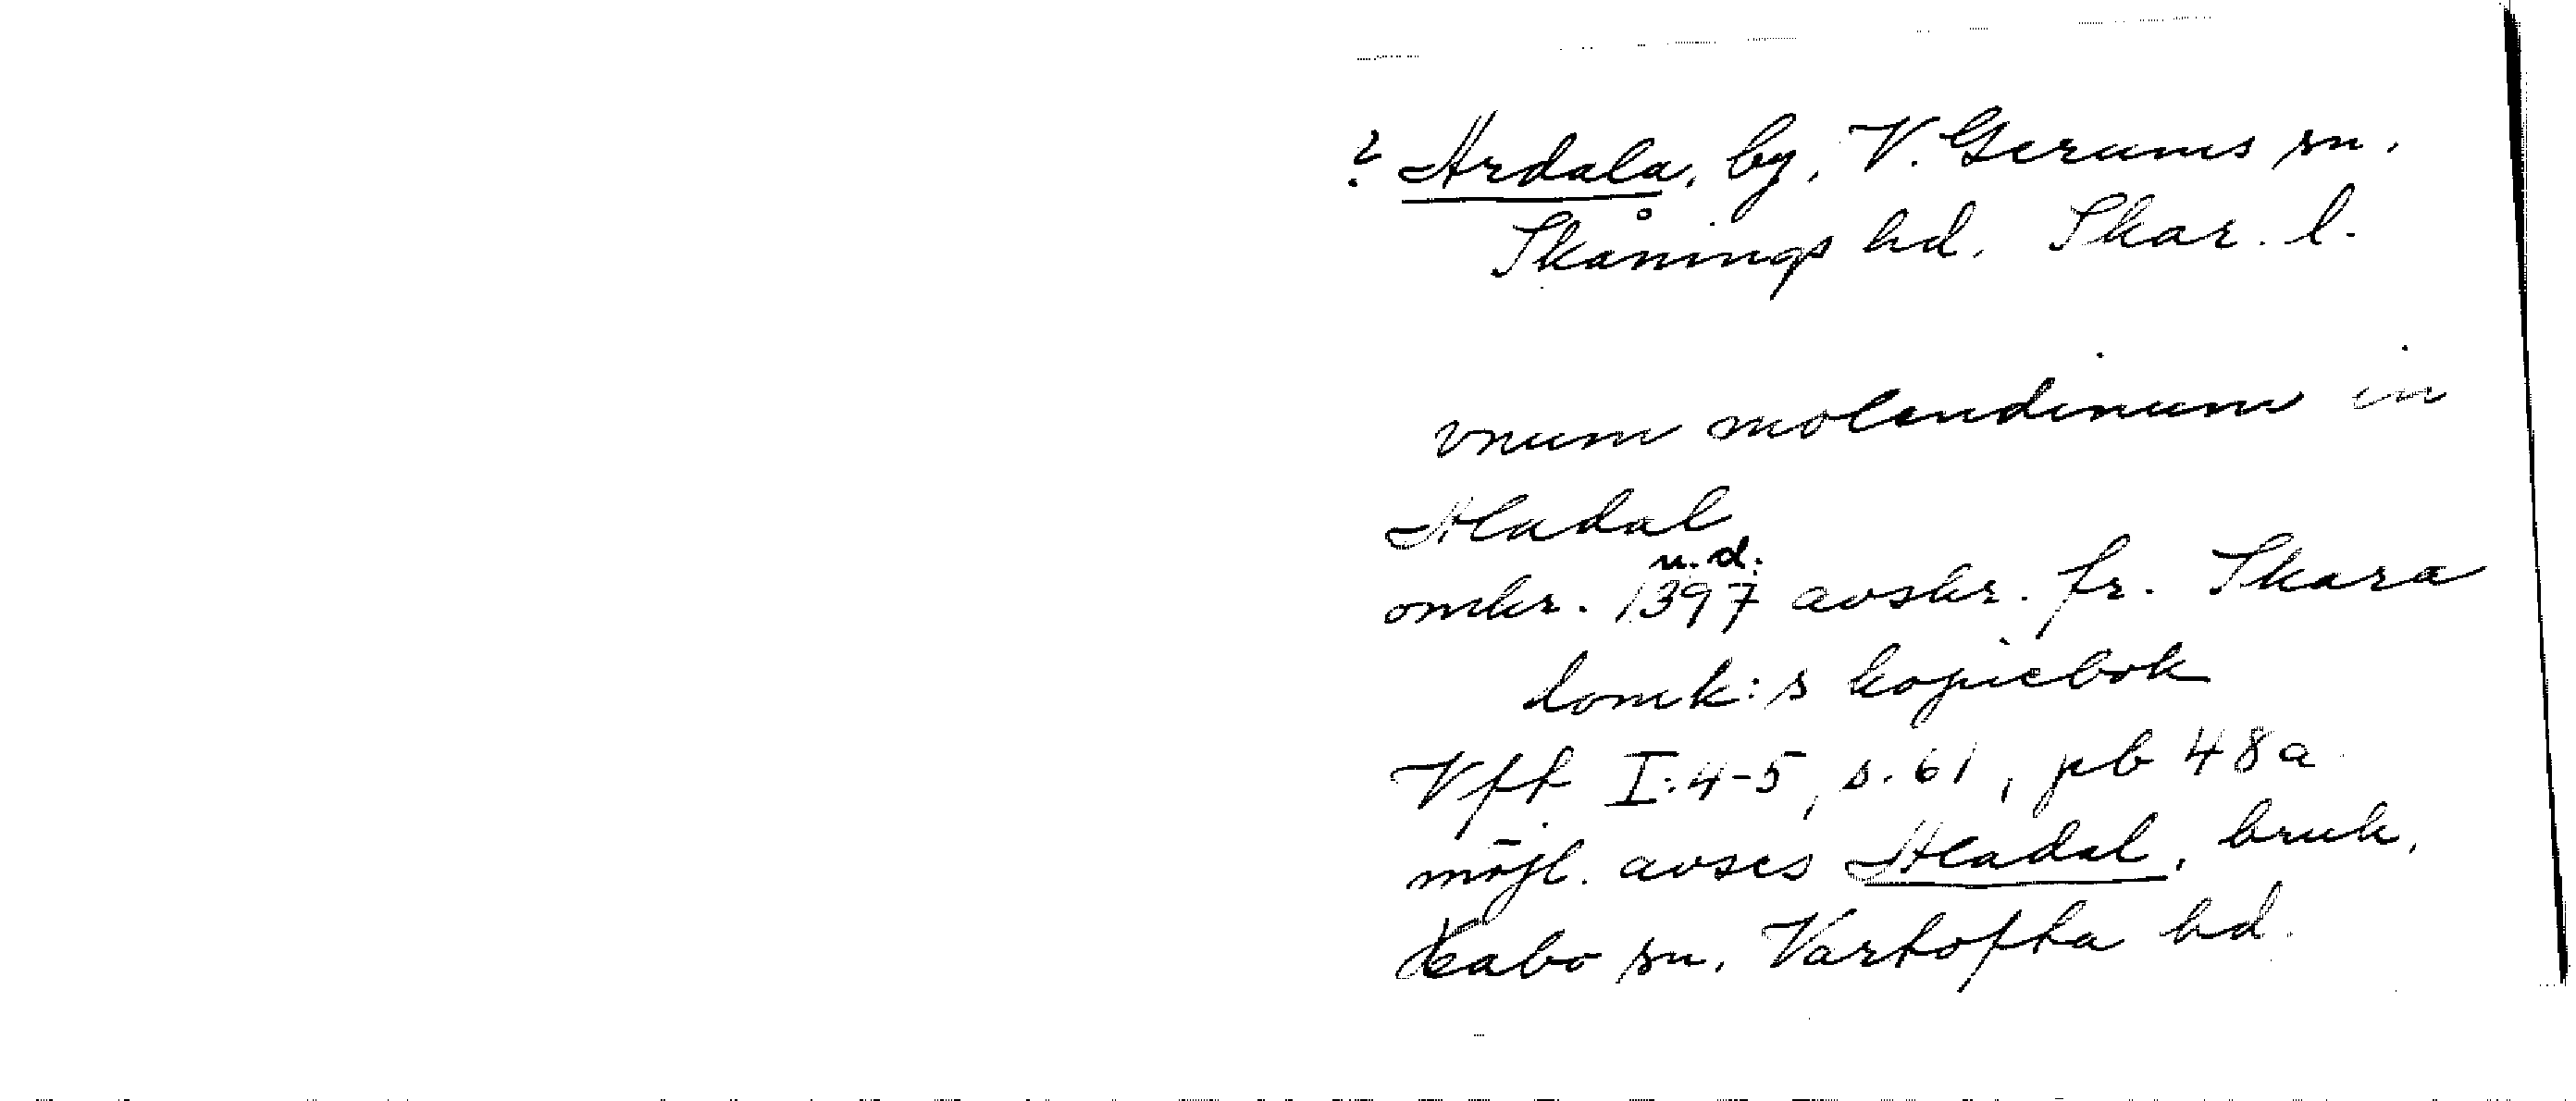 ? Ardala, by, V. Gerums sn.
Skånings hd. Skar. l.
vnum molendinum in
Aladal
u.d.
omkr. 1397 avskr. fr. Skara
domk:s kopiebok
Vft I:4-5, s. 61, pb 48a
möjl. avses Aladal, bruk,
Habo sn. Vartofta hd.